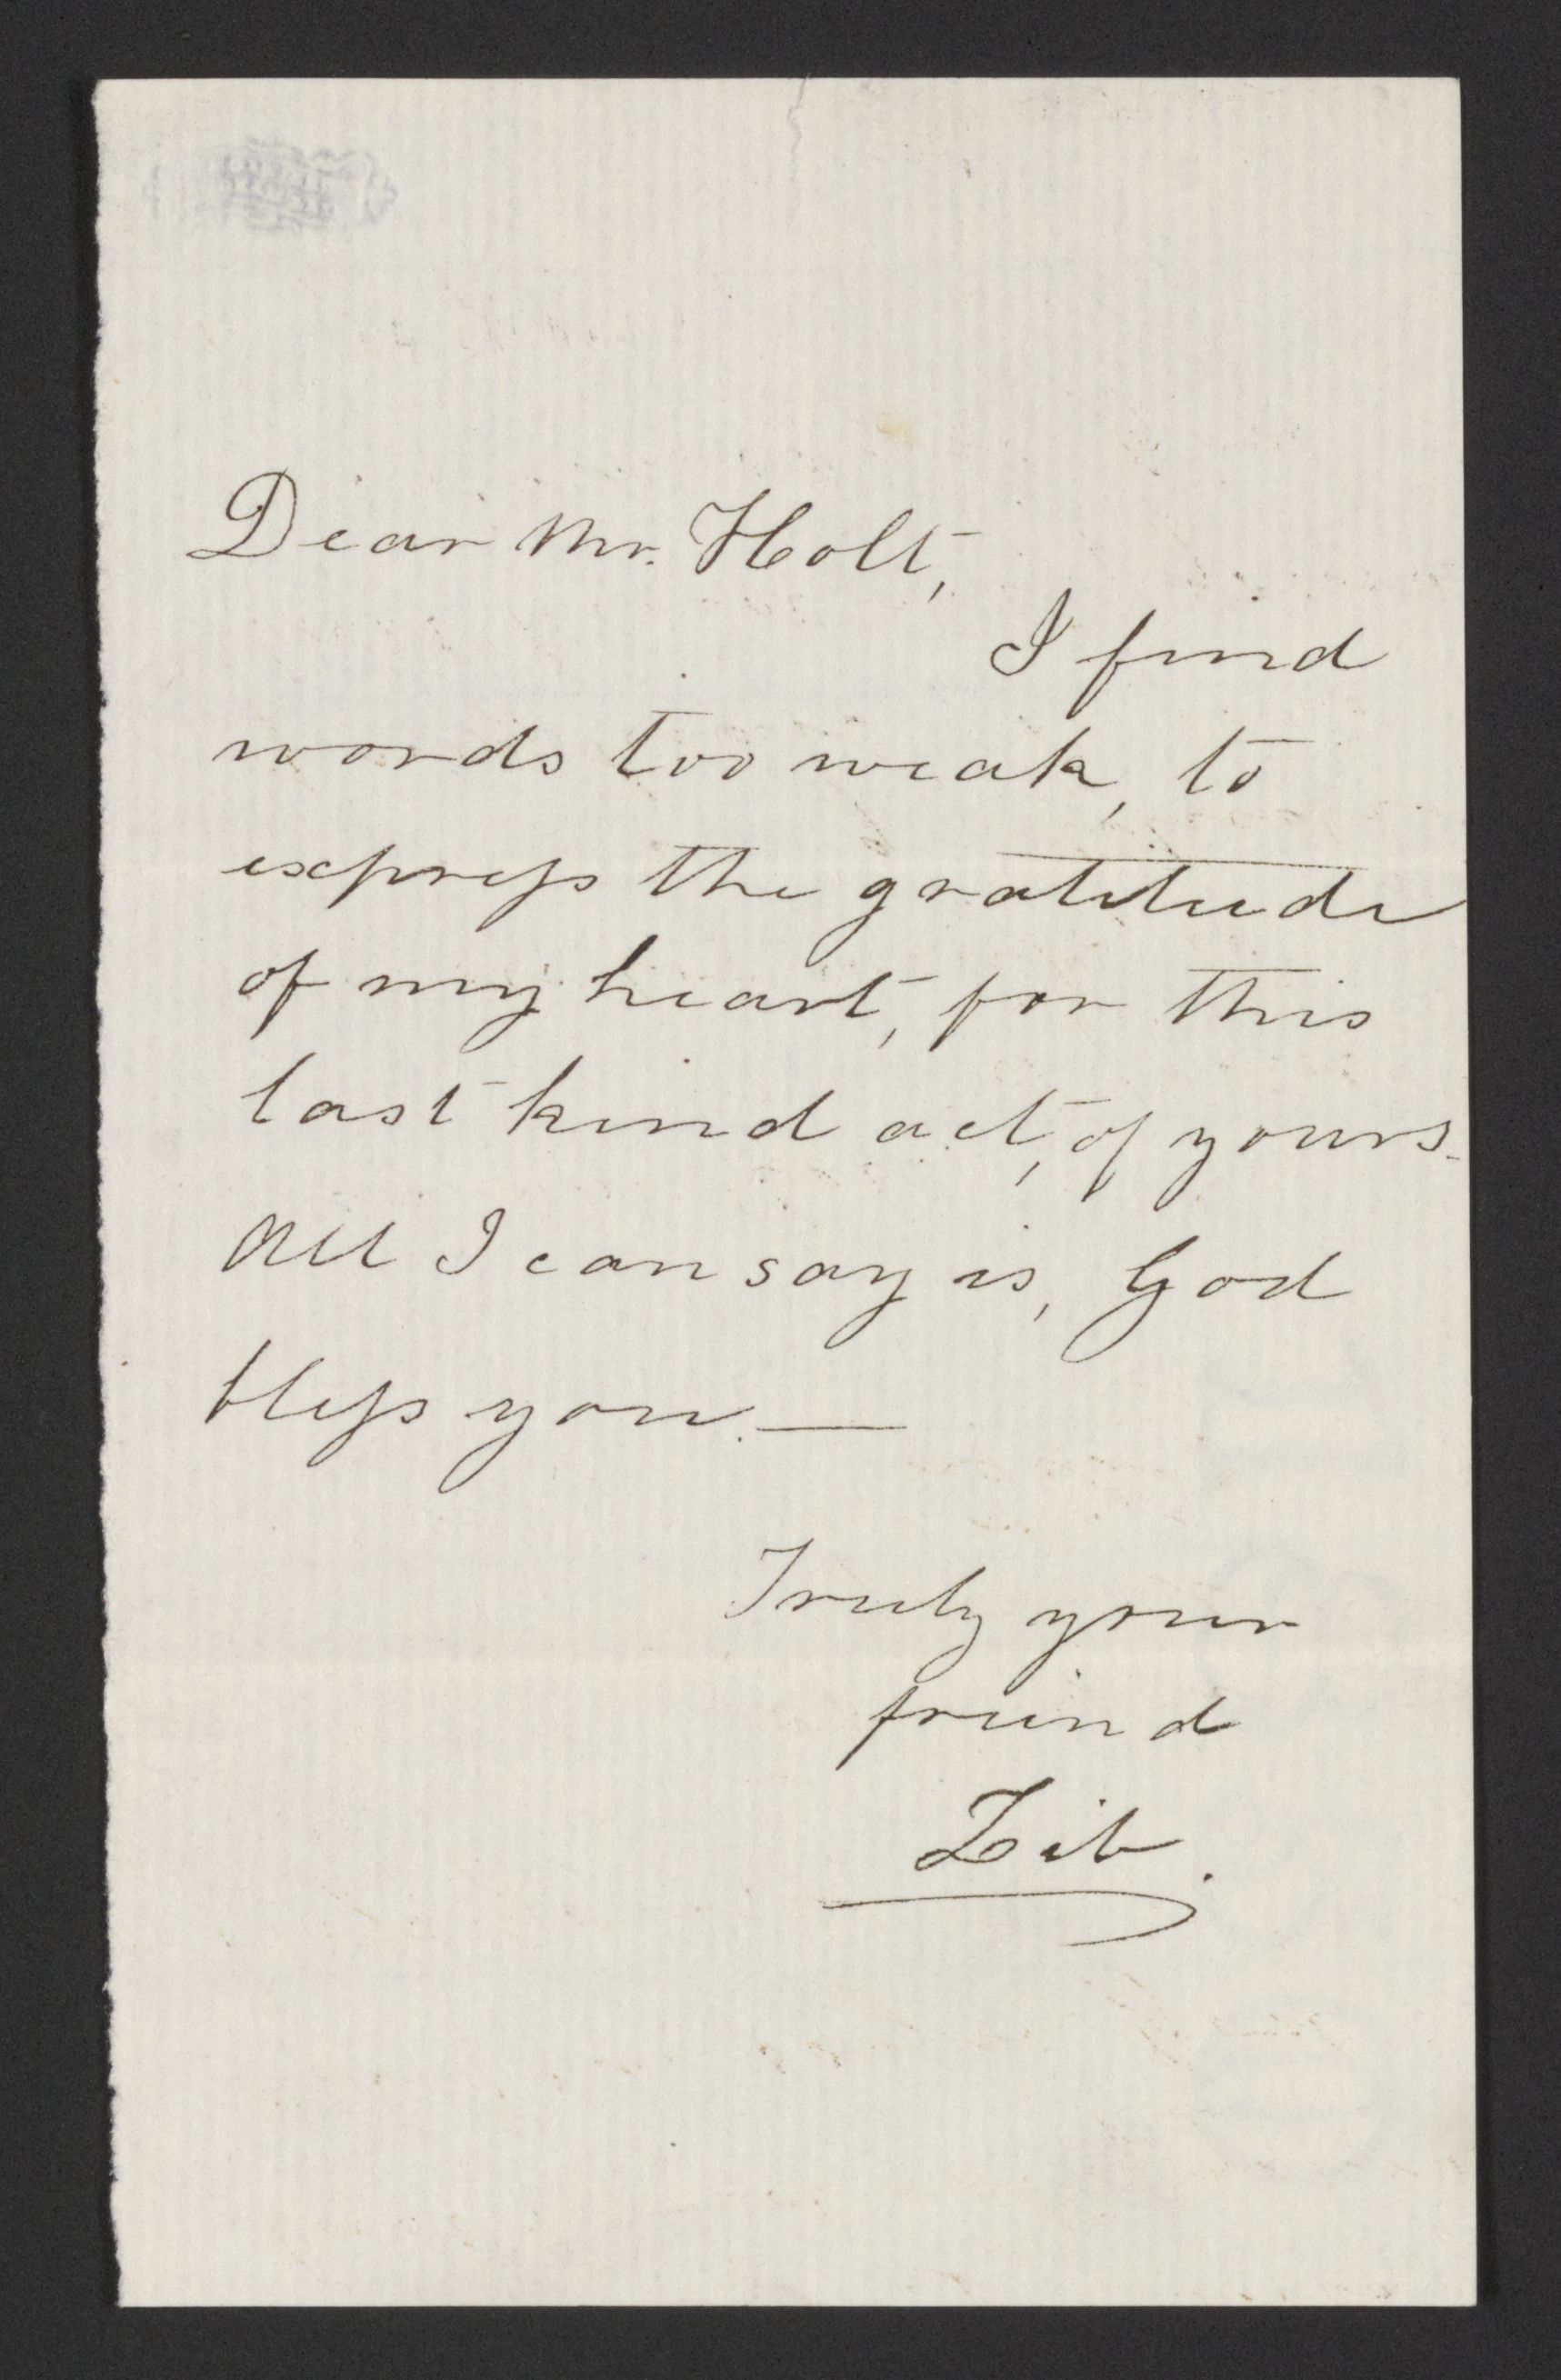 Dear Mr. Holt,
I find
words too weak, to
express the gratitude
of my heart, for this
last kind act, of yours.
All I can say is, God
bless you. —
Truly your
friend
Lib.